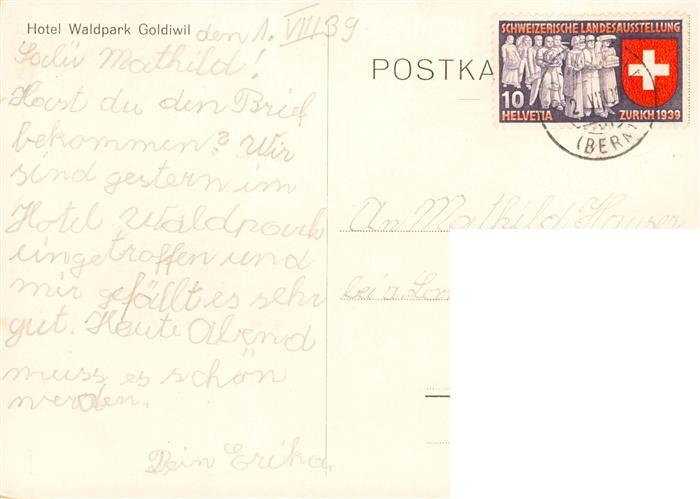 Hotel Waldpark Goldiwil den 1. VIII 39
Salü Mathild!
Hast du den Brief
bekommen? Wir
sind gestern im
Hotel Waldpark
eingetroffen und
mir gefällt es sehr
gut. Heute Abend
muss es schön
werden.
Dein Erika.
POSTKA
SCHWEIZERISCHE LANDESAUSSTELLUNG
10
HELVETIA ZURICH 1939
(BERN)
An Mathild Hauser
bei